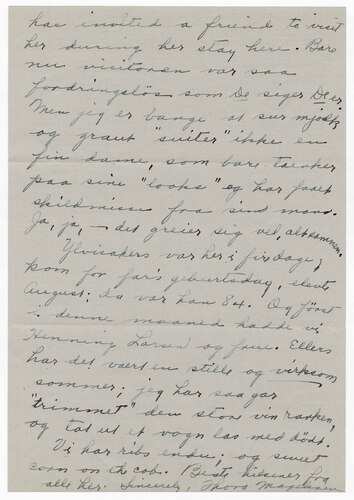 har invited a friend to visit
her during her stay here. Bare
nu visitoren var saa
fordringsløs som De siger De er.
Men jeg er bange at sur mjølk
og graut "suiter" ikke en
fin dame, som bare tænker
paa sine "looks" og har faaet
skildmisse fra sind mand.
Ja, ja, — det greier sig vel, altsammen.
Ylvisakers var her i fire dage;
kom for far's geburtsdag, elevte
August; da var han 84. Og først
i denne maaned hadde vi
Henning Larsen og frue. Ellers
har det vært en stille og virksom
sommer; jeg har saagar
"trimmet" den store vinranken,
og tat ut et vogn las med dødt.
Vi har ribs endnu; og sweet
corn on the cob. Beste hilsener fra
alle her. Sincerely, Thora Magelssen